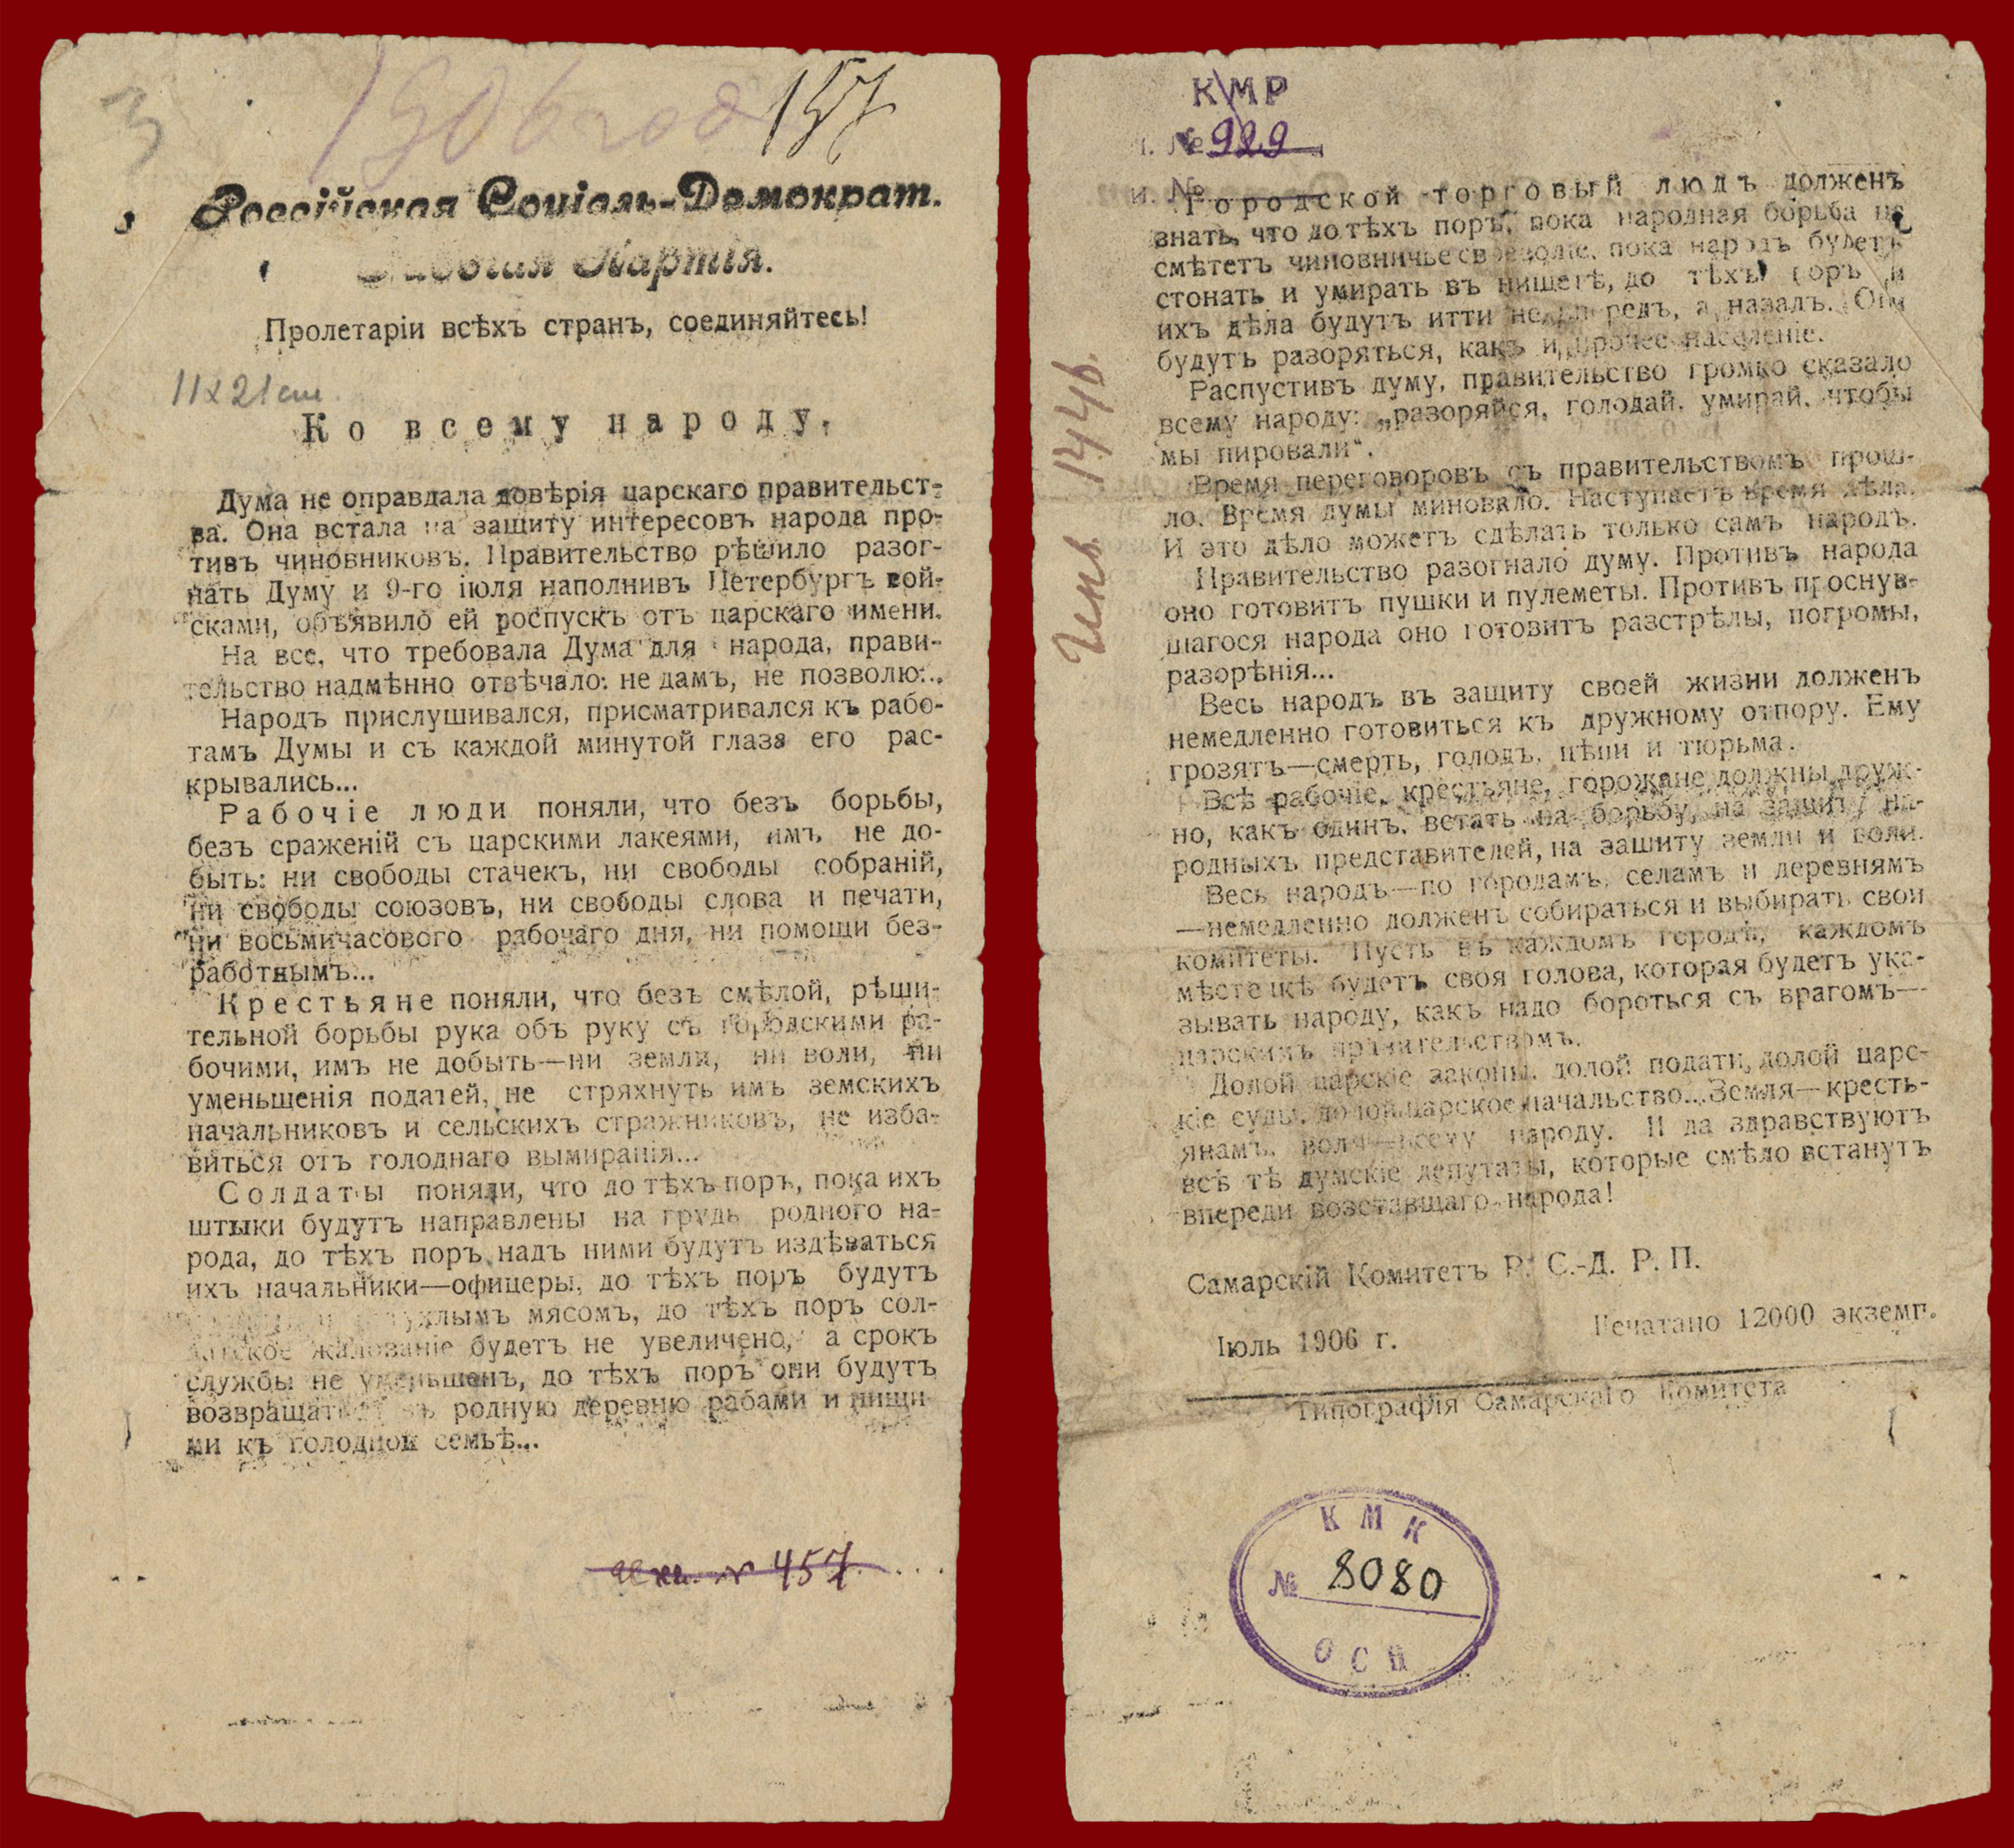 3
1906 год
157
Россійская Соціаль-Демократ.
Партія.
Пролетаріи всѣхъ странъ, соединяйтесь!
11х21 см.
Ко всему народу.
Дума не оправдала довѣрія царскаго правительст-
ва. Она встала на защиту интересовъ народа про-
тивъ чиновниковъ. Правительство рѣшило разог-
нать Думу и 9-го іюля наполнивъ Петербургъ вой-
сками, объявило ей роспускъ отъ царскаго имени.
На все, что требовала Дума для народа, прави-
тельство надмѣнно отвѣчало: не дамъ, не позволю...
Народъ прислушивался, присматривался къ рабо-
тамъ Думы и съ каждой минутой глаза его рас-
крывались...
Рабочіе люди поняли, что безъ борьбы,
безъ сраженій съ царскими лакеями, имъ не до-
быть: ни свободы стачекъ, ни свободы собраній,
ни свободы союзовъ, ни свободы слова и печати,
ни восьмичасового рабочаго дня, ни помощи без-
работнымъ...
Крестьяне поняли, что безъ смѣлой, рѣши-
тельной борьбы рука объ руку съ городскими ра-
бочими, имъ не добыть—ни земли, ни воли, ни
уменьшенія податей, не стряхнуть имъ земскихъ
начальниковъ и сельскихъ стражниковъ, не изба-
виться отъ голоднаго вымиранія...
Солдаты поняли, что до тѣхъ поръ, пока ихъ
штыки будутъ направлены на грудь родного на-
рода, до тѣхъ поръ надъ ними будутъ издѣваться
ихъ начальники—офицеры, до тѣхъ поръ будутъ
тухлымъ мясомъ, до тѣхъ поръ сол-
датское жалованіе будетъ не увеличено, а срокъ
службы не уменьшенъ, до тѣхъ поръ они будутъ
возвращаться въ родную деревню рабами и нищи-
ми къ голодной семьѣ...
№ 457
КМР
№ 929
и. №
Городской торговый людъ долженъ
знать, что до тѣхъ поръ, пока народная борьба не
смѣтетъ чиновничье своеволіе, пока народъ будетъ
стонать и умирать въ нищетѣ, до тѣхъ поръ и
ихъ дѣла будутъ итти не впередъ, а назадъ. Они
будутъ разоряться, какъ и прочее населеніе.
Распустивъ думу, правительство громко сказало
всему народу: „разоряйся, голодай, умирай, чтобы
мы пировали“.
Время переговоровъ съ правительствомъ прош-
ло. Время думы миновало. Наступаетъ время дѣла.
И это дѣло можетъ сдѣлать только самъ народъ.
Правительство разогнало думу. Противъ народа
оно готовитъ пушки и пулеметы. Противъ проснув-
шагося народа оно готовитъ разстрѣлы, погромы,
разорѣнія...
Весь народъ въ защиту своей жизни долженъ
немедленно готовиться къ дружному отпору. Ему
грозятъ—смерть, голодъ, цѣпи и тюрьма.
Всѣ рабочіе, крестьяне, горожане должны друж-
но, какъ одинъ, встать на борьбу, на защиту на-
родныхъ представителей, на защиту земли и воли.
Весь народъ—по городамъ, селамъ и деревнямъ
—немедленно долженъ собираться и выбирать свои
комитеты. Пусть въ каждомъ городѣ, каждомъ
мѣстечкѣ будетъ своя голова, которая будетъ ука-
зывать народу, какъ надо бороться съ врагомъ—
царскимъ правительствомъ.
Долой царскіе законы, долой подати, долой царс-
кіе суды, долой царское начальство...Земля—кресть-
янамъ, воля—всему народу. И да здравствуютъ
всѣ тѣ думскіе депутаты, которые смѣло встанутъ
впереди возставшаго народа!
Самарскій Комитетъ Р. С.-Д. Р. П.
Печатано 12000 экземп.
Іюль 1906 г.
Типографія Самарскаго Комитета
КМК
№ 8080
ОСП